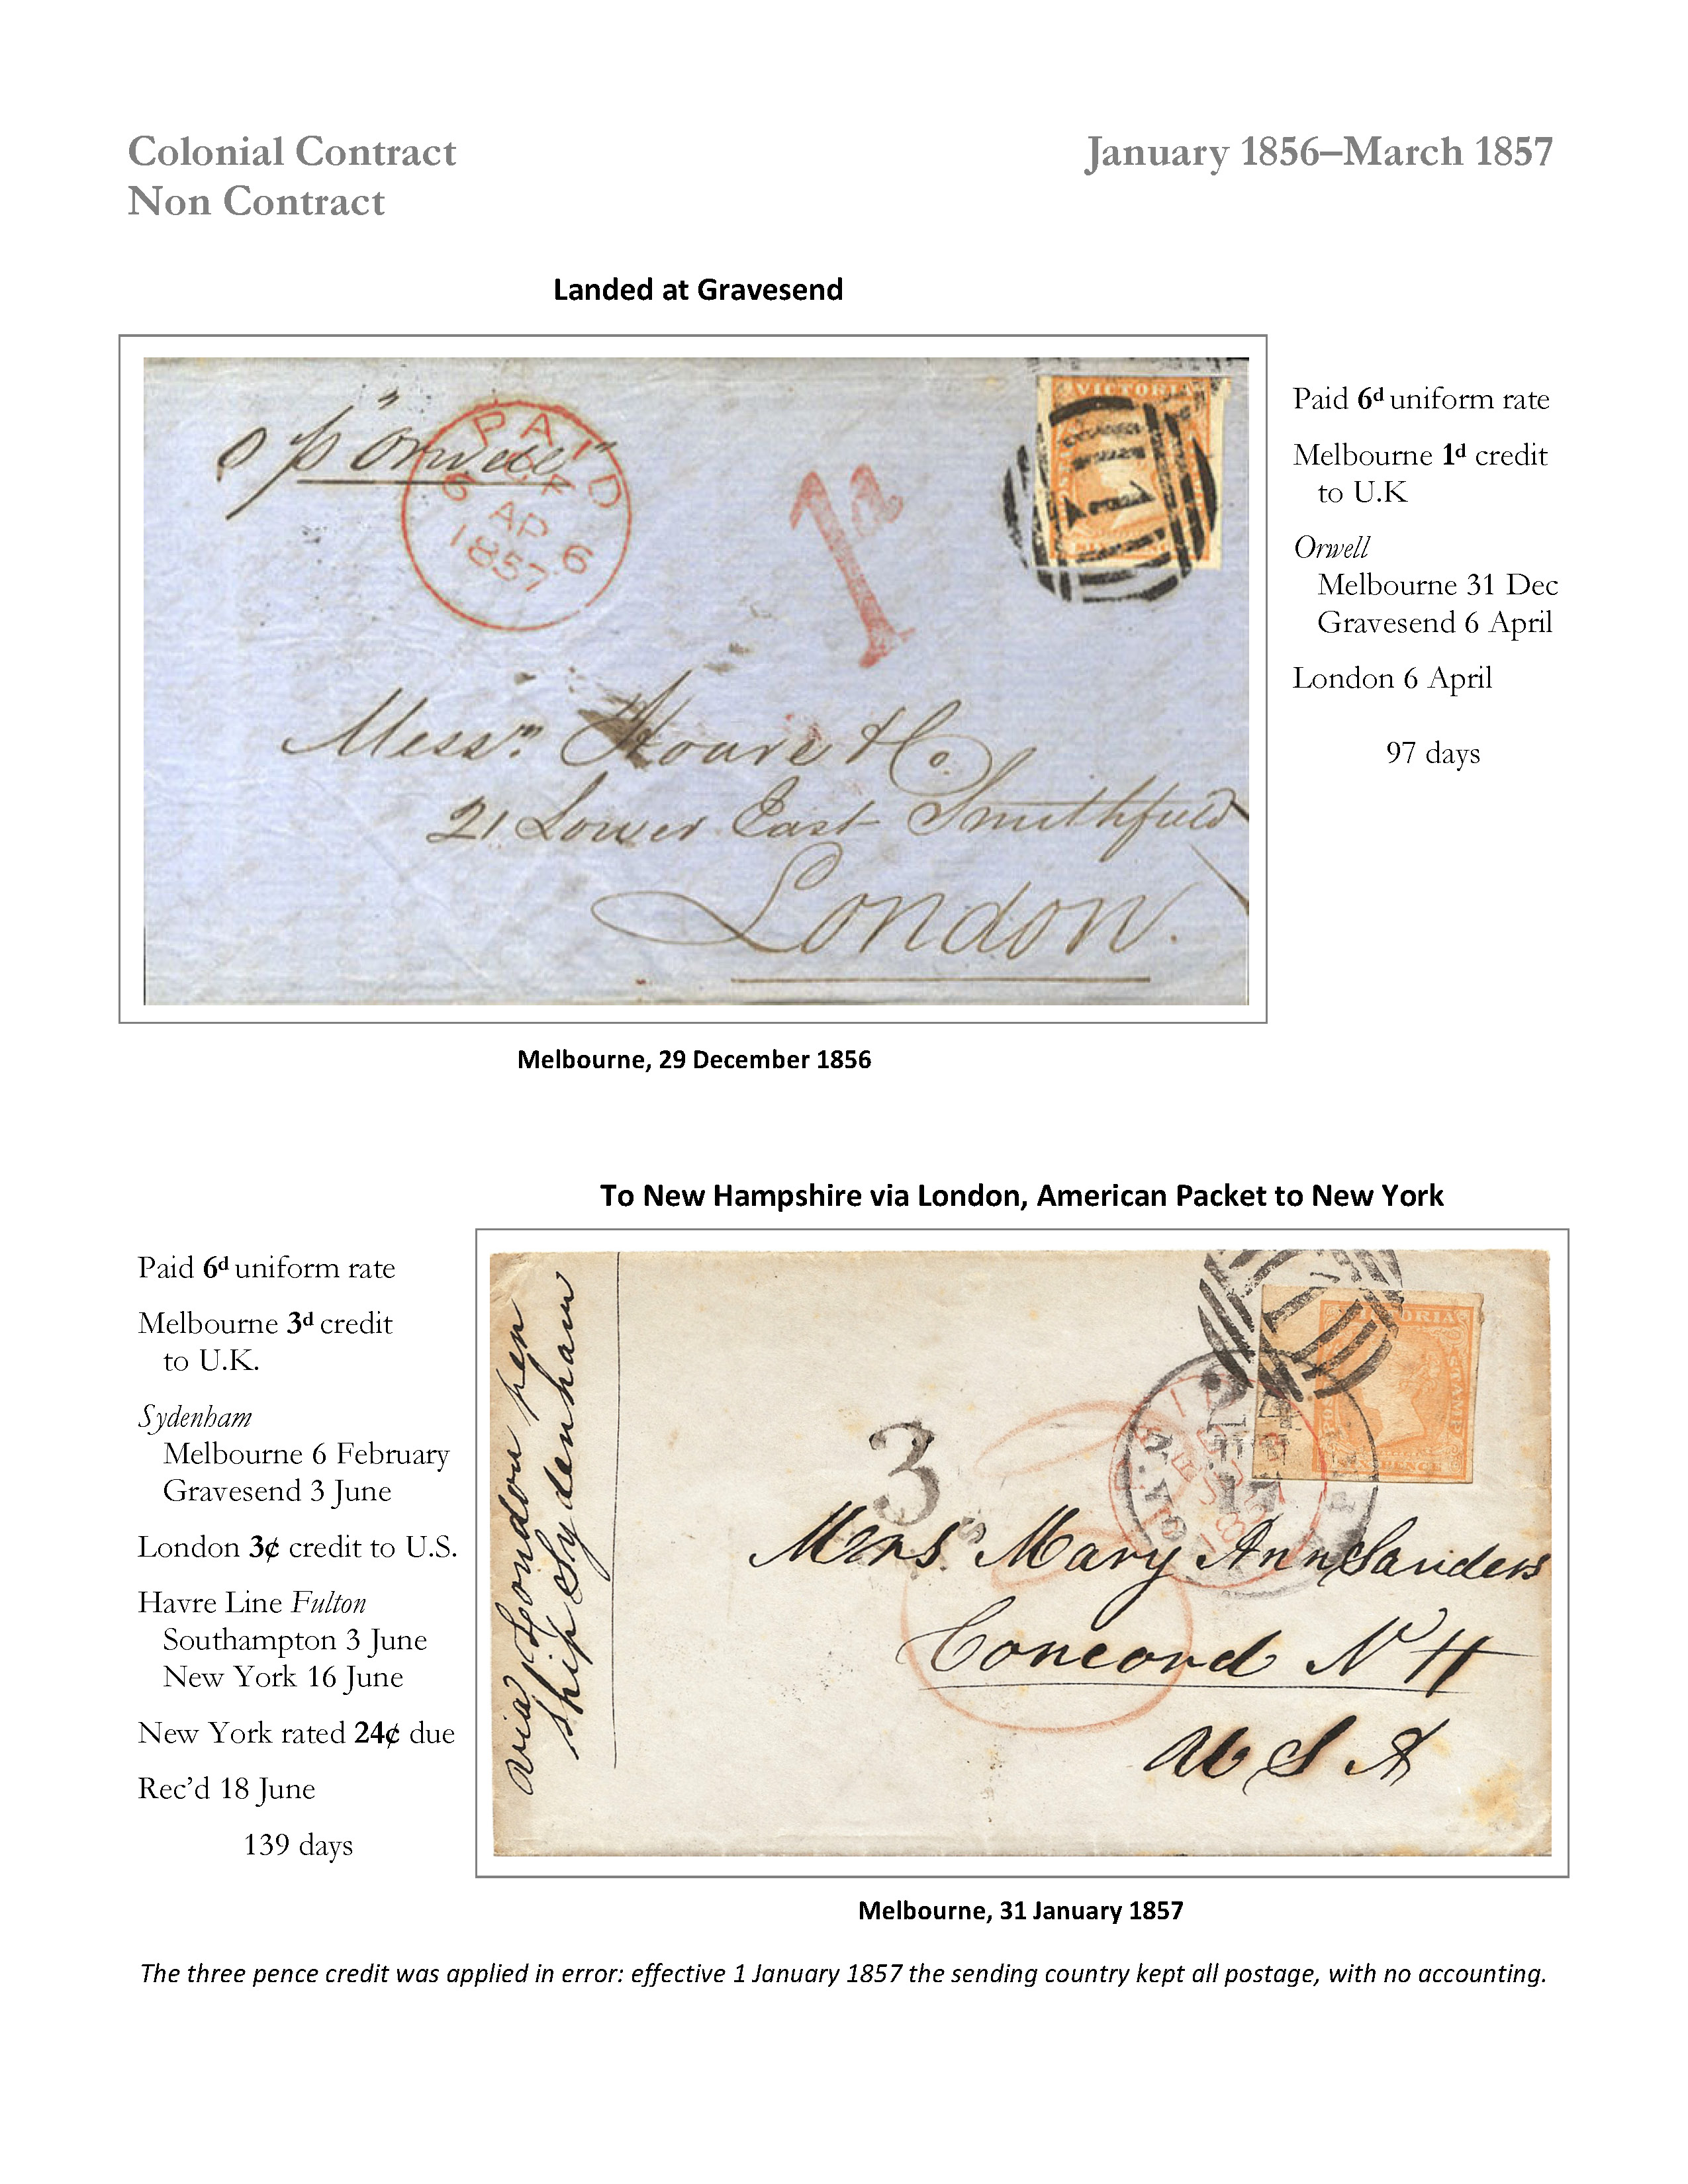 Colonial Contract
Non Contract
January 1856–March 1857
Landed at Gravesend
p "Orwell"
PAID
6 AP 6
1857
1d
VICTORIA
1
Messrs Hoare & Co.
21 Lower East Smithfield
London.
Paid 6d uniform rate
Melbourne 1d credit
to U.K
Orwell
Melbourne 31 Dec
Gravesend 6 April
London 6 April
97 days
Melbourne, 29 December 1856
To New Hampshire via London, American Packet to New York
Paid 6d uniform rate
Melbourne 3d credit
to U.K.
Sydenham
Melbourne 6 February
Gravesend 3 June
London 3¢ credit to U.S.
Havre Line Fulton
Southampton 3 June
New York 16 June
New York rated 24¢ due
Rec'd 18 June
139 days
via London per
ship Sydenham
3
VICTORIA
STAMP
Mrs Mary Ann Sanders
Concord N H
U S A
Melbourne, 31 January 1857
The three pence credit was applied in error: effective 1 January 1857 the sending country kept all postage, with no accounting.